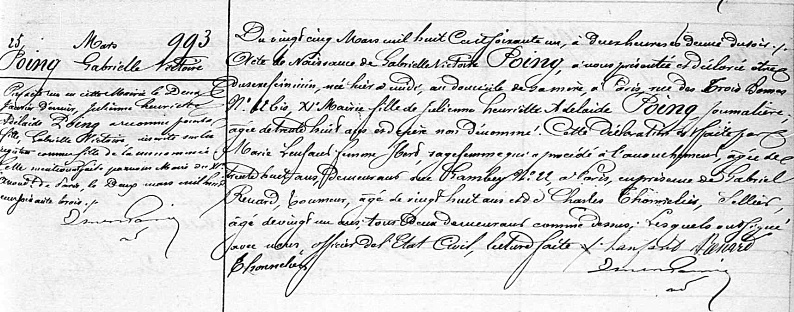 25 Mars 993
Poinq Gabrielle Victoire
Présent un en cette Mairie le Deux
Janvier Dernier, Julienne henriette
Adelaïde Poinq a reconnu pour sa
fille, Gabrielle Victoire inscrite sur les
registres comme fille de la susnommée
le Deux mars mil huit
cent soixante trois ./.
Du vingt cinq Mars mil huit Cent soixante un, à deux heures et demie du soir ./.
Acte de Naissance de Gabrielle Victoire Poinq, à nous présentée et déclarée être
du sexe féminin, née hier à midi, au domicile de sa mère, à Paris, rue des Trois Bornes
N° 12 bis, XI° Mairie fille de Julienne henriette Adelaïde Poinq, journalière,
agée de trente huit ans et de père non dénommé. Cette Déclaration est faite par
Marie femme sage femme qui a procédé à l'accouchement, agée de
trente huit ans, demeurant rue Rambey N° 22 à Paris, en présence de Gabriel
Renard, tourneur, âgé de vingt huit ans et de Charles Thonnelier, Sellier,
âgé de vingt un ans tous Deux demeurans comme dessus ; Lesquels ont signé
avec nous, officier de l'Etat Civil, lecture faite ./. Renard
Thonnelier